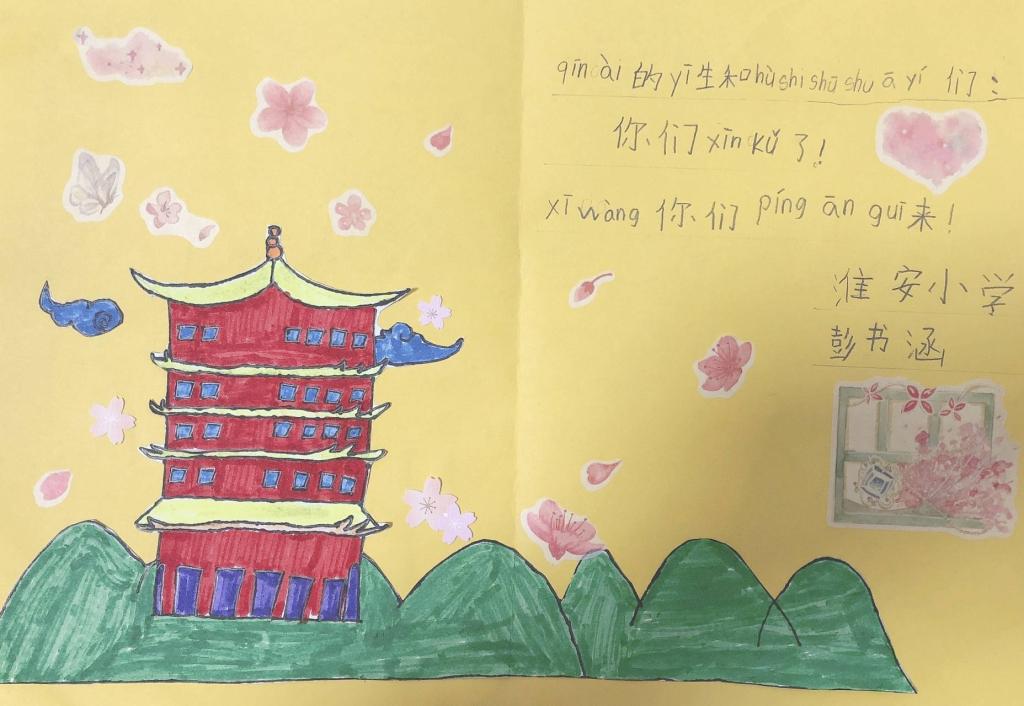 qīn ài 的 yī 生和 hù shi shū shu ā yí 们：
你们 xīn kǔ 了！
xī wàng 你们 píng ān guī 来！
淮安小学
彭书涵